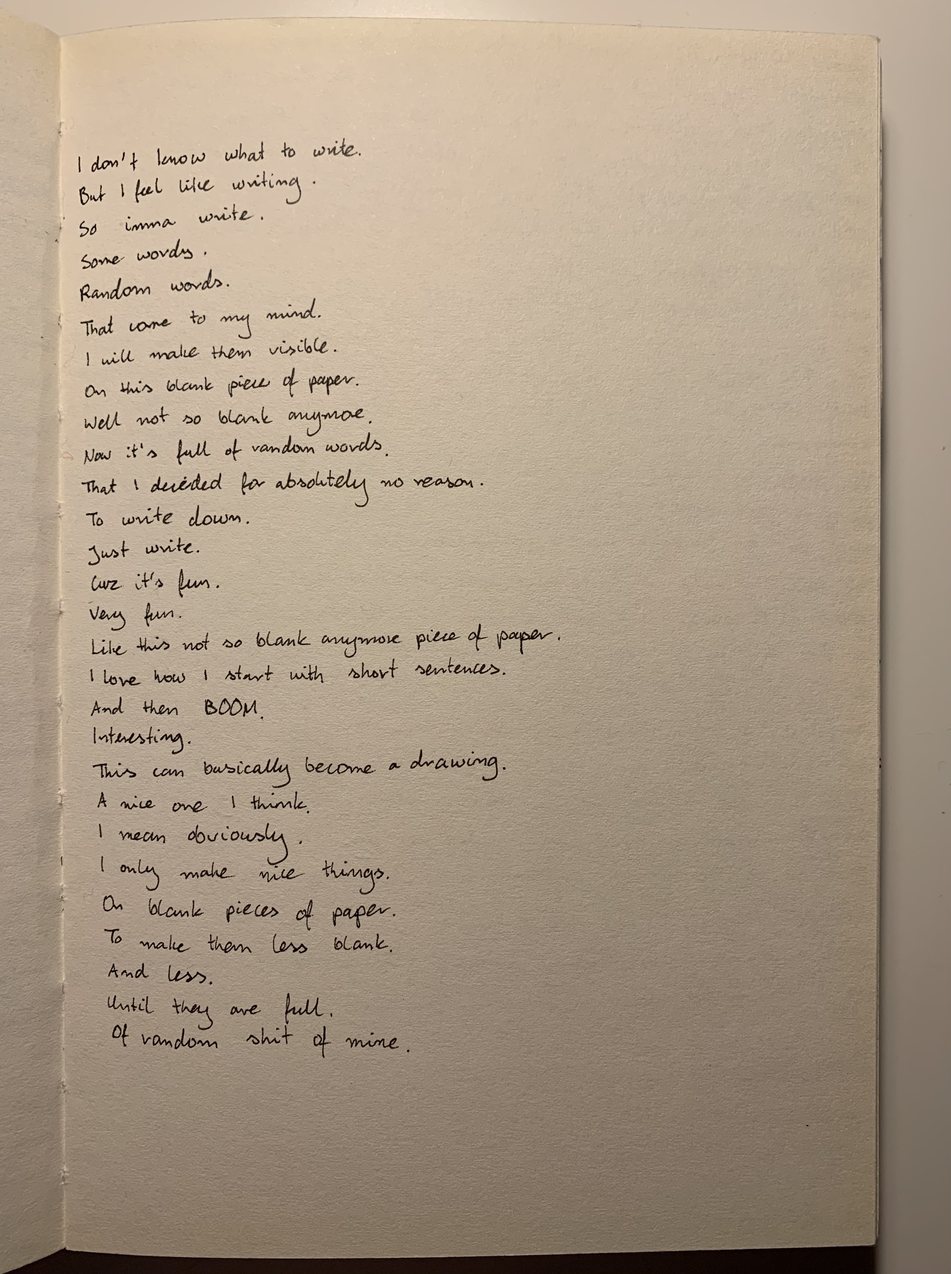 I don't know what to write.
But I feel like writing.
So imma write.
Some words.
Random words.
That come to my mind.
I will make them visible.
On this blank piece of paper.
Well not so blank anymore.
Now it's full of random words.
That I decided for absolutely no reason.
To write down.
Just write.
Cuz it's fun.
Very fun.
Like this not so blank anymore piece of paper.
I love how I start with short sentences.
And then BOOM.
Interesting.
This can basically become a drawing.
A nice one I think.
I mean obviously.
I only make nice things.
On blank pieces of paper.
To make them less blank.
And less.
Until they are full.
Of random shit of mine.